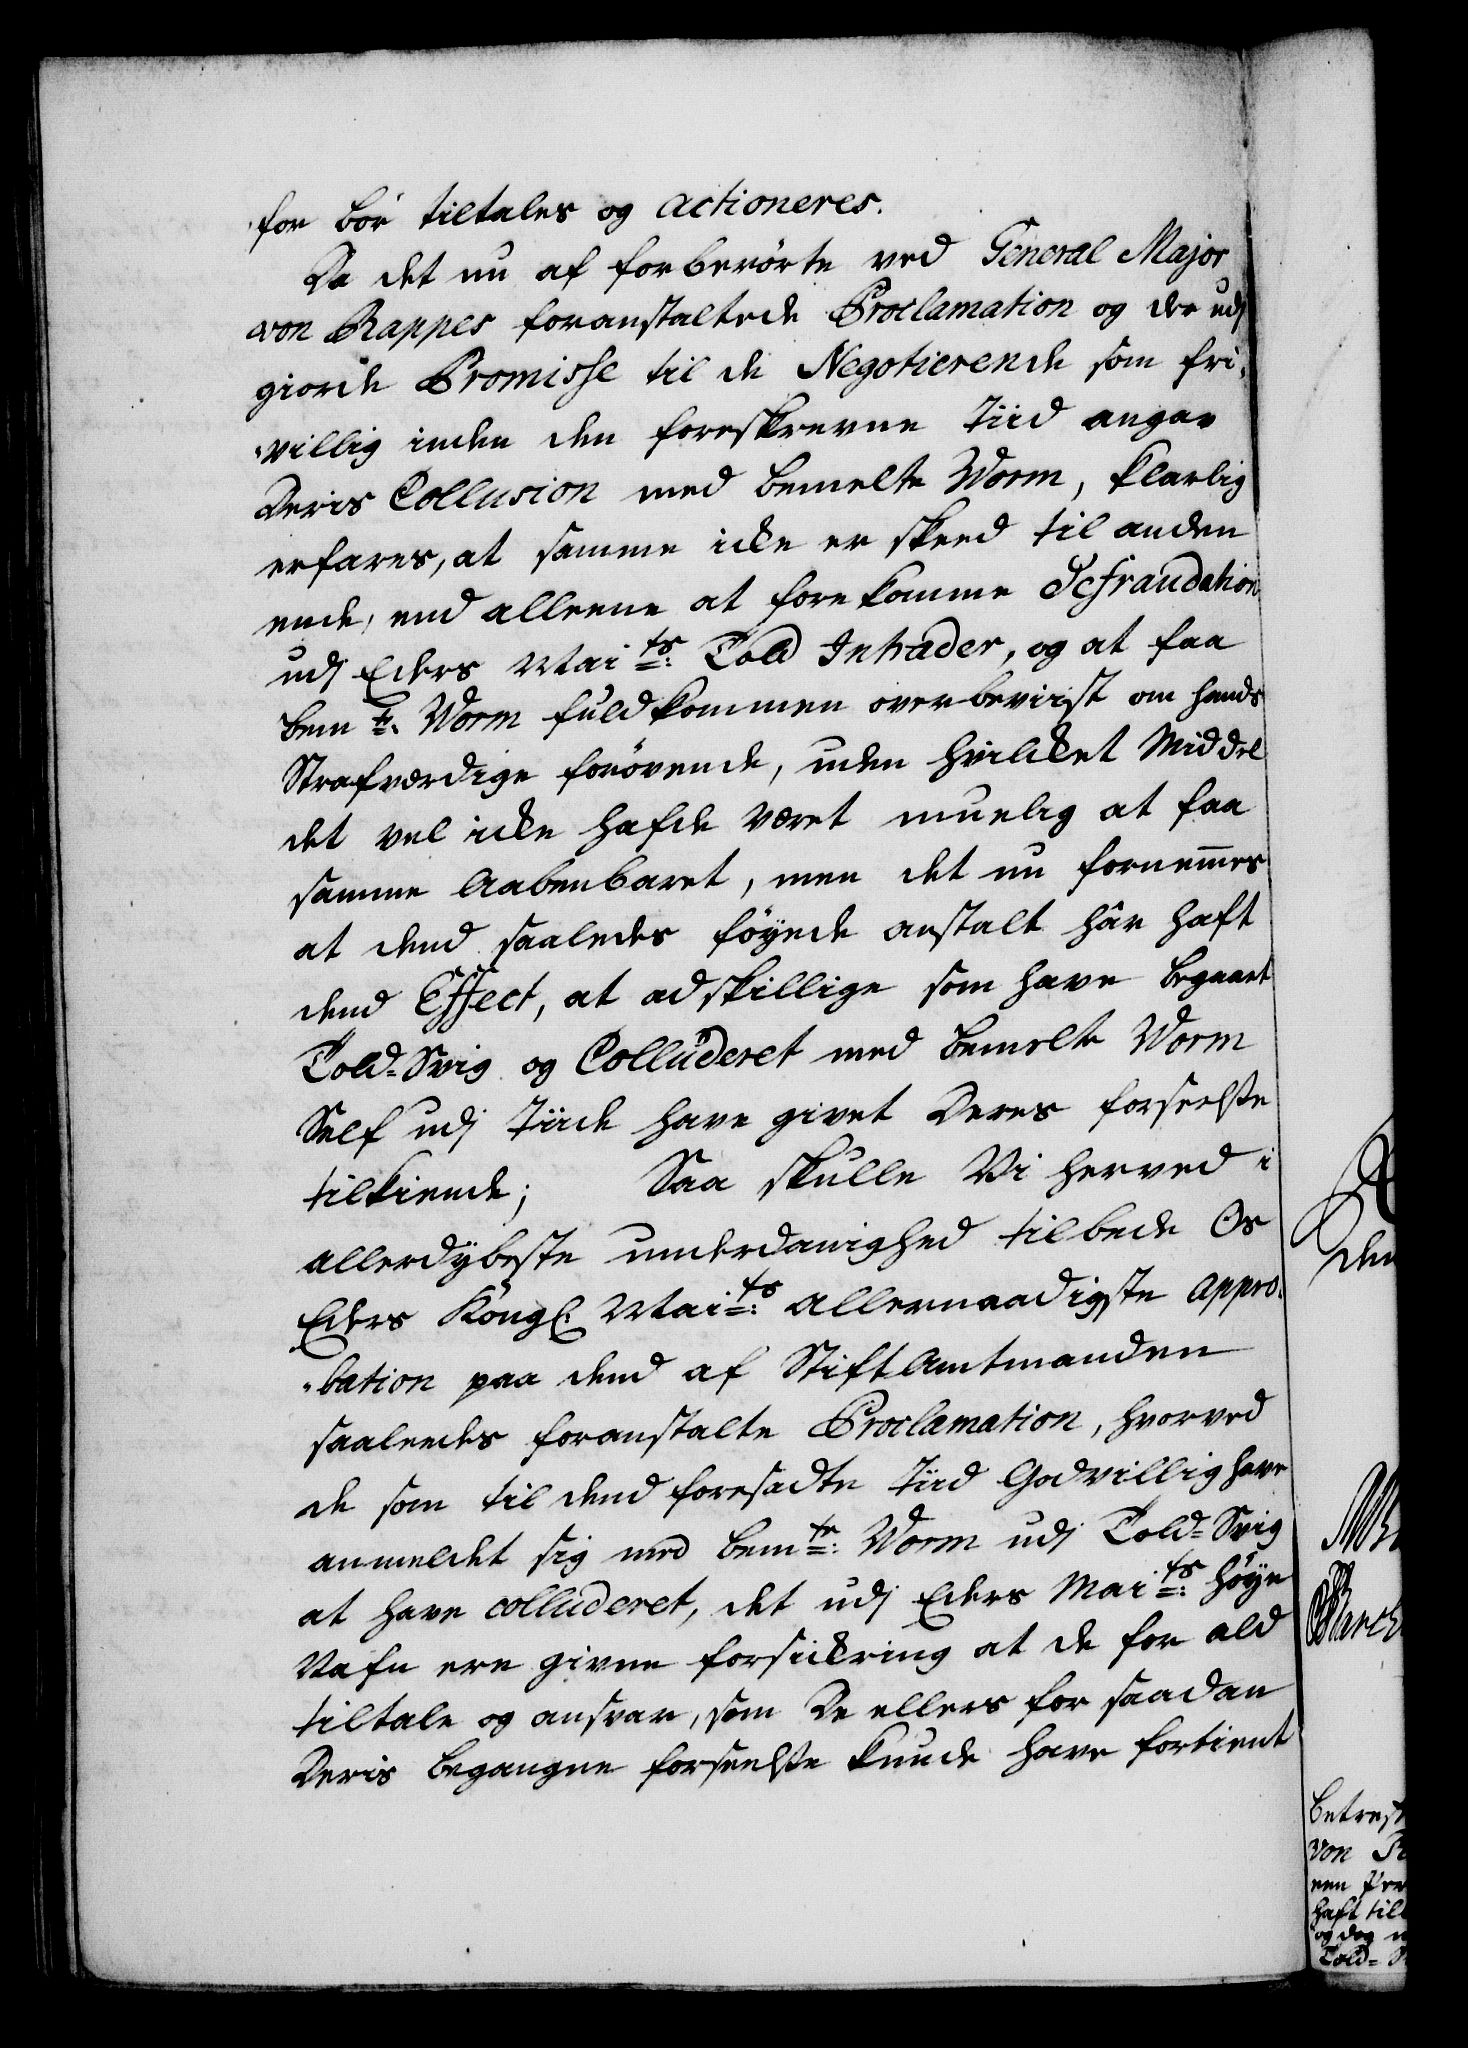 for bör tiltales og actioneres.
Da det nu af forberörte ved General Major
von Rappes foranstaltede Proclamation og der udj
giorde Promisse til de Negotierende som fri„
„villig inden den foreskrevne Tiid angav
Deris Collusion med bemelte Worm, klarlig
erfares, at samme icke er skeed til anden
ende, end alleene at forekomme Defraudation
udj Eders Maits: Told Intrader, og at faa
bemte: Worm fuldkommen overbeviist om hands
Strafværdige forövende, uden hvilcket Middel
det vel icke hafde været muelig at faa
samme Aabenbaret, men det nu fornemmes
at dend saaledes föyede anstalt hâr haft
dend Effect, at adskillige som have begaaet
Told-Svig og Colluderet med bemelte Worm
Self udj Tiide have givet Deres forseelse
tilkiende; Saa skulle Vi herved i
allerdÿbeste underdanighed tilbede Os
Eders Köngl. Maits: allernaadigste appro„
„bation paa dend af Stiftamtmanden
saaledes foranstalte Proclamation, hvorved
de som til dend foresadte Tiid Godvillig have
anmeldet sig med bemte: Worm udj Told-Svig
at have colluderet, det udj Eders Maits: höye
Nafn ere givne forsickring at de for ald
tiltale og ansvar, som De ellers for saadan
Deris begangne forseelse kunde have fortient
den
betref
von
haft til
og dog
Told-